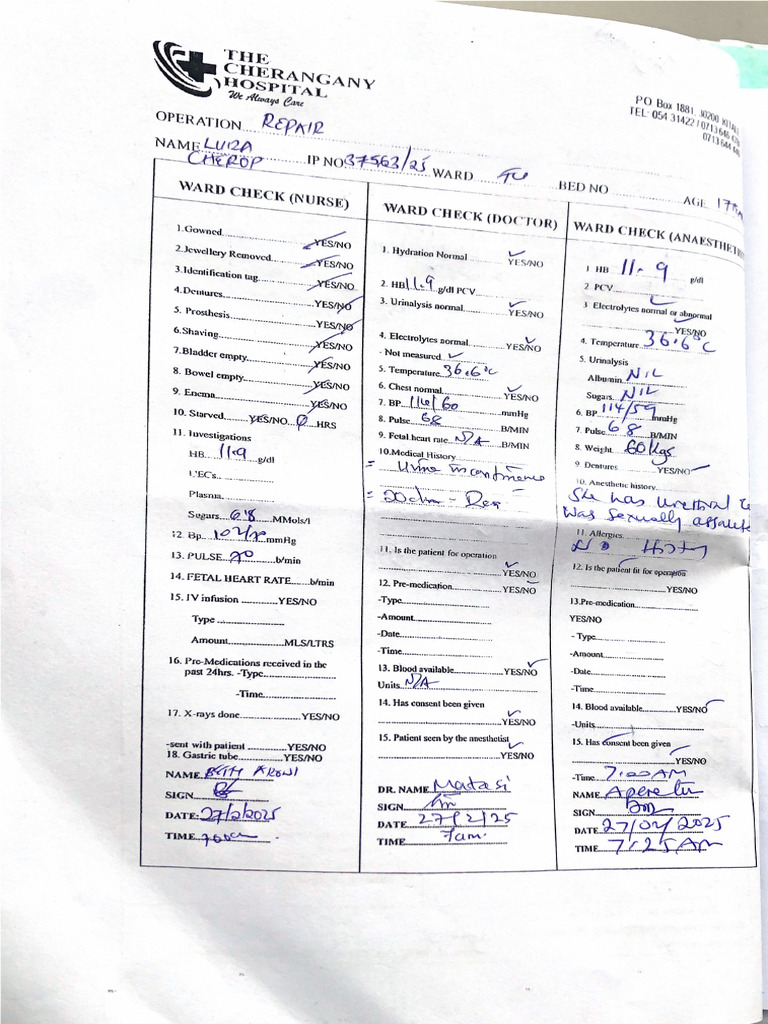 THE
CHERANGANY
HOSPITAL
We Always Care
PO Box 1881, 30200 KITAL
TEL: 054 31422 / 0713 646
0713 644
OPERATION REPAIR
NAME LUIZA
CHEROP IP NO 37563/25 WARD BED NO AGE 17
WARD CHECK (NURSE)
1.Gowned YES/NO
2.Jewellery Removed YES/NO
3.Identification tag YES/NO
4.Dentures YES/NO
5. Prosthesis YES/NO
6.Shaving YES/NO
7.Bladder empty YES/NO
8. Bowel empty YES/NO
9. Enema YES/NO
10. Starved YES/NO HRS
11. Investigations
HB 11.9 g/dl
U'EC's
Plasma
Sugars 6.8 MMols/l
12. Bp 102/70 mmHg
13. PULSE 70 b/min
14. FETAL HEART RATE b/min
15. IV infusion YES/NO
Type
Amount MLS/LTRS
16. Pre-Medications received in the
past 24hrs. -Type
-Time
17. X-rays done YES/NO
-sent with patient YES/NO
18. Gastric tube YES/NO
NAME
SIGN
DATE: 27/2/2025
TIME 700am
WARD CHECK (DOCTOR)
1. Hydration Normal ✓ YES/NO
2. HB 11.9 g/dl PCV
3. Urinalysis normal ✓ YES/NO
4. Electrolytes normal YES/NO ✓
- Not measured ✓
5. Temperature 36.6°C
6. Chest normal ✓ YES/NO
7. BP 114/60 mmHg
8. Pulse 68 B/MIN
9. Fetal heart rate N/A B/MIN
10.Medical History
= Urine incontinence
=
11. Is the patient for operation
✓ YES/NO
12. Pre-medication YES/NO ✓
-Type
-Amount
-Date
-Time
13. Blood available YES/NO ✓
Units N/A
14. Has consent been given
✓ YES/NO
15. Patient seen by the anesthetist
✓ YES/NO
DR. NAME Matasi
SIGN
DATE 27/2/25
TIME 7am
WARD CHECK (ANAESTHET
1 HB 11.9 g/dl
2. PCV
3 Electrolytes normal or abnormal
YES/NO
4. Temperature 36.6°C
5. Urinalysis
Albumin NIL
Sugars NIL
6. BP 114/59 mmHg
7. Pulse 68 B/MIN
8. Weight 60kgs
9. Dentures YES/NO ✓
10. Anesthetic history
She has urethral
was sexually
11. Allergies
NO
12. Is the patient fit for operation
YES/NO
13.Pre-medication
YES/NO
- Type
-Amount
-Date
-Time
14. Blood available YES/NO ✓
-Units
15. Has consent been given
YES/NO
-Time 7:00AM
NAME
SIGN
DATE 27/02/2025
TIME 7:25AM